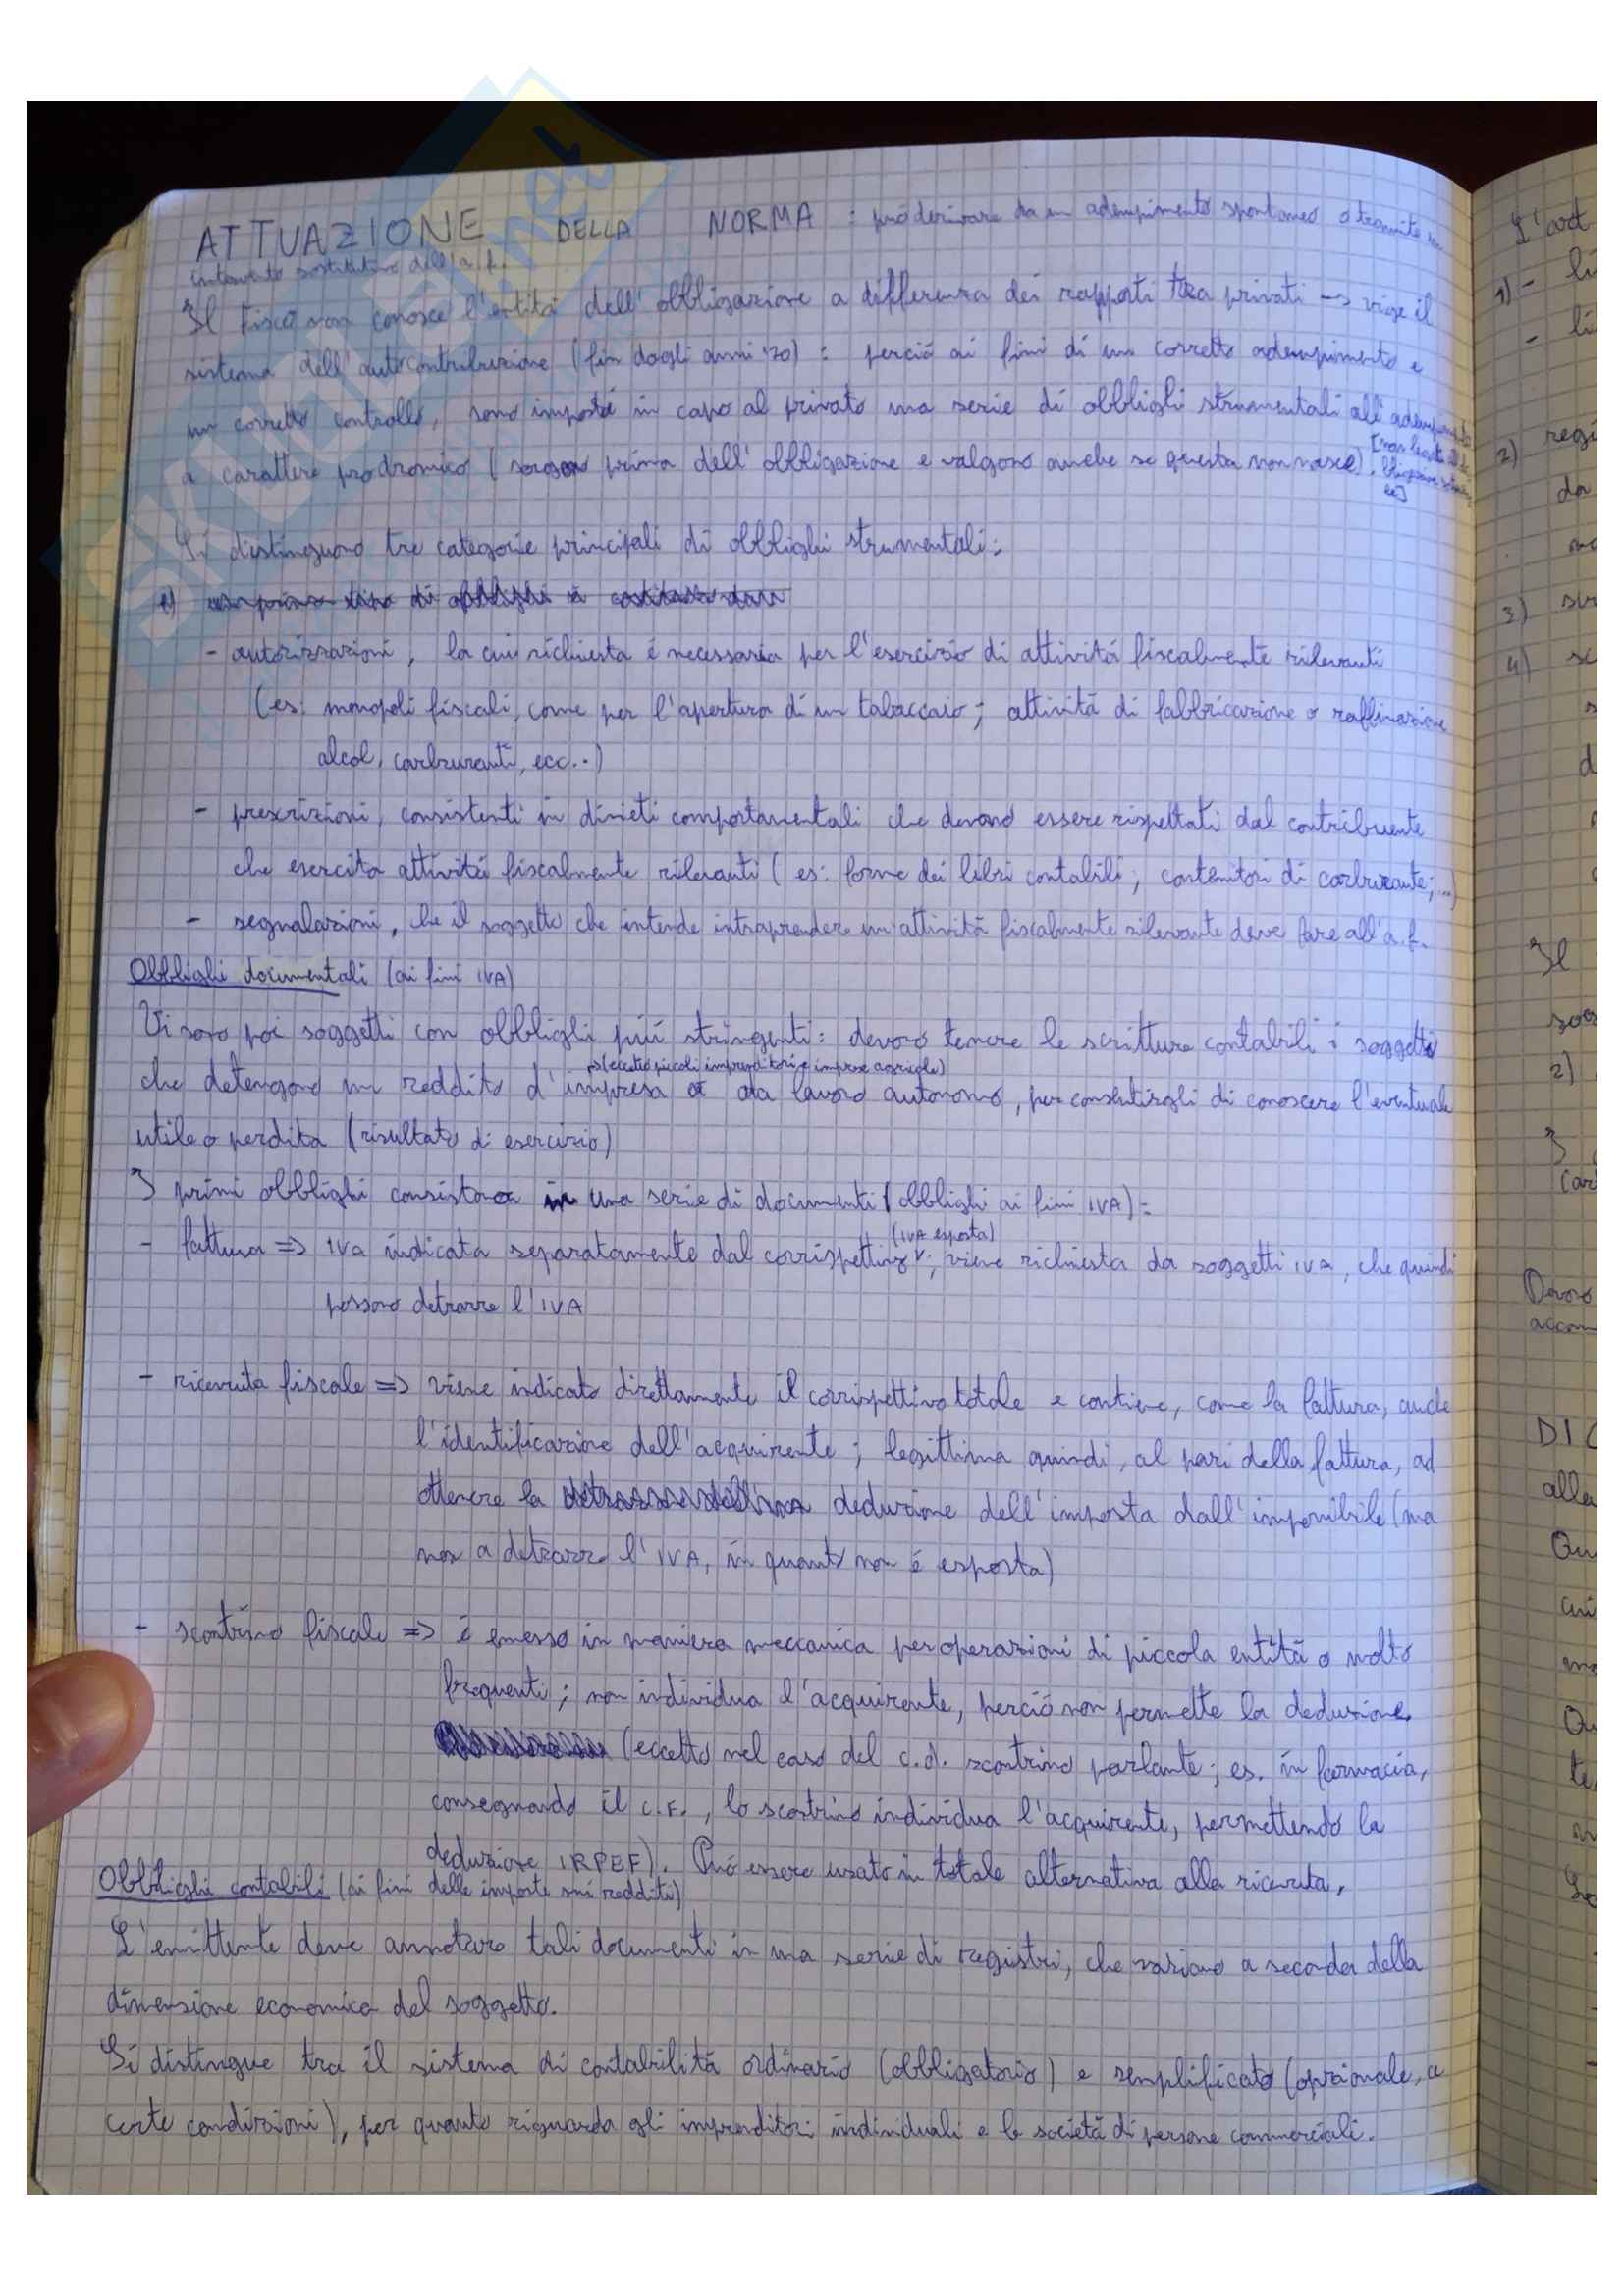 ATTUAZIONE DELLA NORMA : può derivare da un adempimento spontaneo o tramite un
intervento sostitutivo dell'a.f.
Il Fisco non conosce l'entità dell'obbligazione a differenza dei rapporti tra privati → vige il
sistema dell'autocontribuzione (fin dagli anni '70) : perciò ai fini di un corretto adempimento e
un corretto controllo, sono imposti in capo al privato una serie di obblighi strumentali all'adempimento
a carattere prodromico (sorgono prima dell'obbligazione e valgono anche se questa non nasce).
Si distinguono tre categorie principali di obblighi strumentali:
- autorizzazioni, la cui richiesta é necessaria per l'esercizio di attivitá fiscalmente rilevanti
(es: monopoli fiscali, come per l'apertura di un tabaccaio; attivitá di fabbricazione o raffinazione
alcol, carburanti, ecc..)
- prescrizioni, consistenti in divieti comportamentali che devono essere rispettati dal contribuente
che esercita attivitá fiscalmente rilevanti (es: forme dei libri contabili; contenitori di carburante; ...)
- segnalazioni, che il soggetto che intende intraprendere un'attivitá fiscalmente rilevante deve fare all'a.f.
Obblighi documentali (ai fini IVA)
Vi sono poi soggetti con obblighi più stringenti: devono tenere le scritture contabili i soggetti
→(eccetto piccoli imprenditori e imprese agricole)
che detengono un reddito d'impresa o da lavoro autonomo, per consentirgli di conoscere l'eventuale
utile o perdita (risultato di esercizio)
I primi obblighi consistono in una serie di documenti (obblighi ai fini IVA):
(IVA esposta)
- fattura => IVA indicata separatamente dal corrispettivo; viene richiesta da soggetti IVA, che quindi
possono detrarre l'IVA
- ricevuta fiscale => viene indicato direttamente il corrispettivo totale e contiene, come la fattura, anche
l'identificazione dell'acquirente; legittima quindi, al pari della fattura, ad
ottenere la deduzione dell'imposta dall'imponibile (ma
non a detrarre l'IVA, in quanto non é esposta)
- scontrino fiscale => é emesso in maniera meccanica per operazioni di piccola entitá o molto
frequenti; non individua l'acquirente, perció non permette la deduzione.
(eccetto nel caso del c.d. scontrino parlante; es. in farmacia,
consegnando il C.F., lo scontrino individua l'acquirente, permettendo la
deduzione IRPEF). Puó essere usato in totale alternativa alla ricevuta.
Obblighi contabili (ai fini delle imposte sui redditi)
L'emittente deve annotare tali documenti in una serie di registri, che variano a seconda della
dimensione economica del soggetto.
Si distingue tra il sistema di contabilitá ordinario (obbligatorio) e semplificato (opzionale, a
certe condizioni), per quanto riguarda gli imprenditori individuali e le societá di persone commerciali.